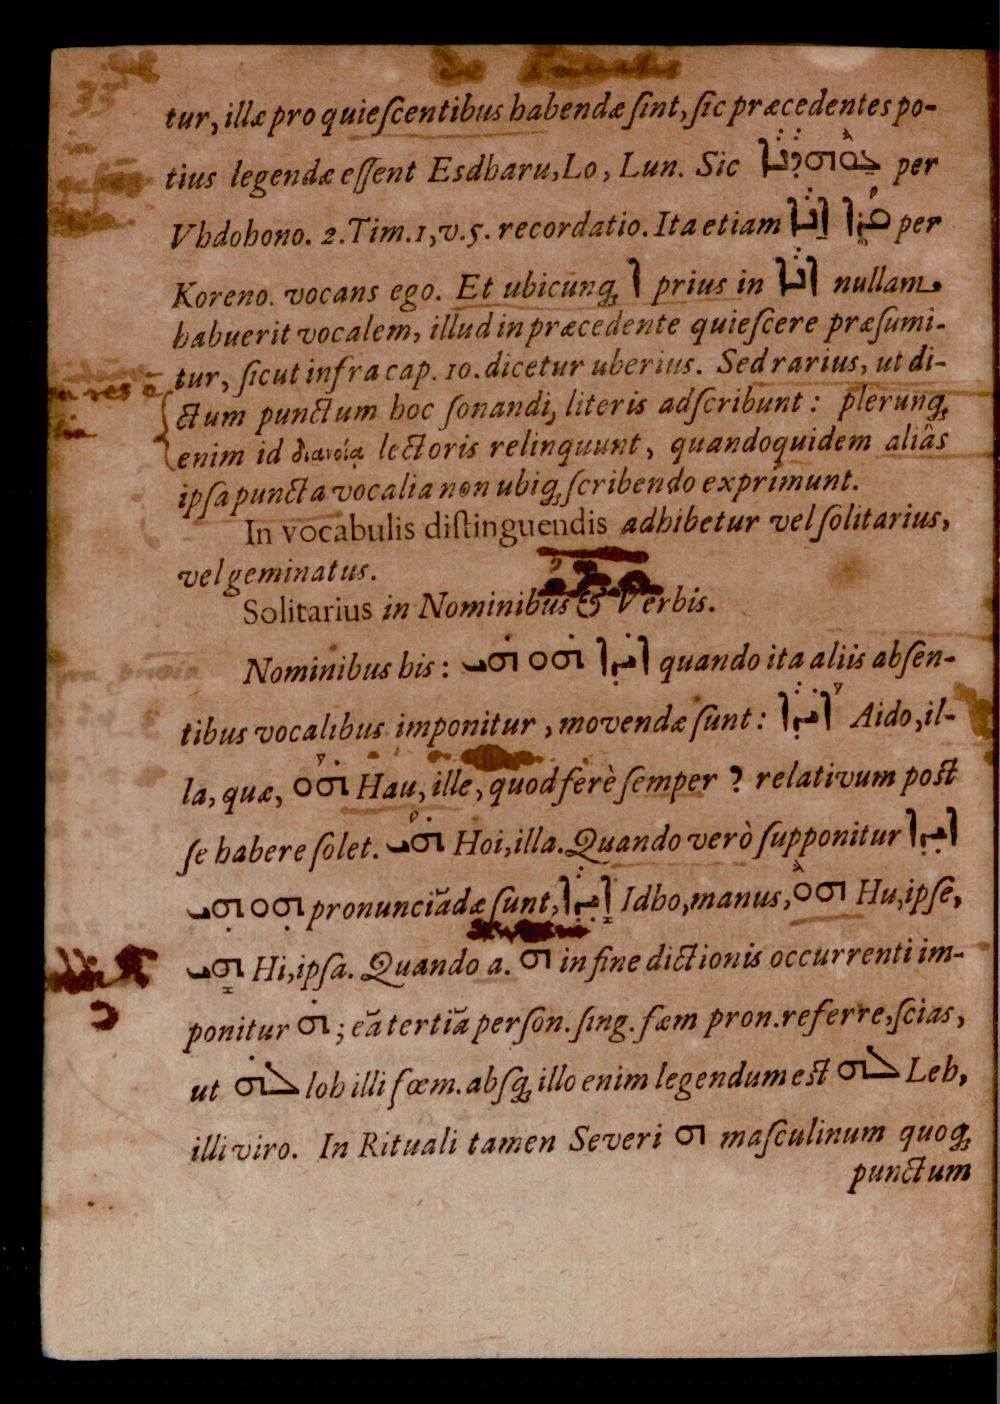 33
tur, illæ pro quieſcentibus habendæ ſint, ſic præcedentes po-
tius legendæ eſſent Esdharu, Lo, Lun. Sic ܥܘܗܕܢܐ per
Vhdohono. 2. Tim. 1, v. 5. recordatio. Ita etiam ܩܪܐ ܐܢܐ per
Koreno. vocans ego. Et ubicunq; ܐ prius in ܐܢܐ nullam
habuerit vocalem, illud in præcedente quieſcere præſumi-
tur, ſicut infra cap. 10. dicetur uberius. Sed rarius, ut di-
ctum punctum hoc ſonandi, literis adſcribunt: plerunq;
enim id διανοίᾳ lectoris relinquunt, quandoquidem aliâs
ipſa puncta vocalia non ubiq; ſcribendo exprimunt.
In vocabulis diſtinguendis adhibetur vel ſolitarius,
vel geminatus.
Solitarius in Nominibus & Verbis.
Nominibus his: ܐܝܕܐ ܗܘ ܗܝ quando ita aliis abſen-
tibus vocalibus imponitur, movendæ ſunt: ܐܝܕܐ Aido, il-
la, quæ, ܗܘ Hau, ille, quod ferè ſemper ? relativum poſt
ſe habere ſolet. ܗܝ Hoi, illa. Quando verò ſupponitur ܐܝܕܐ
ܗܘ ܗܝ pronunciãdæ ſunt, ܐܝܕܐ Idho, manus, ܗܘ Hu, ipſe,
ܗܝ Hi, ipſa. Quando a. ܗ in fine dictionis occurrenti im-
ponitur ܗ; eã tertiã perſon. ſing. fæm pron. referre, ſcias,
ut ܠܗ loh illi fœm. abſq; illo enim legendum eſt ܠܗ Leh,
illi viro. In Rituali tamen Severi ܗ maſculinum quoq;
punctum